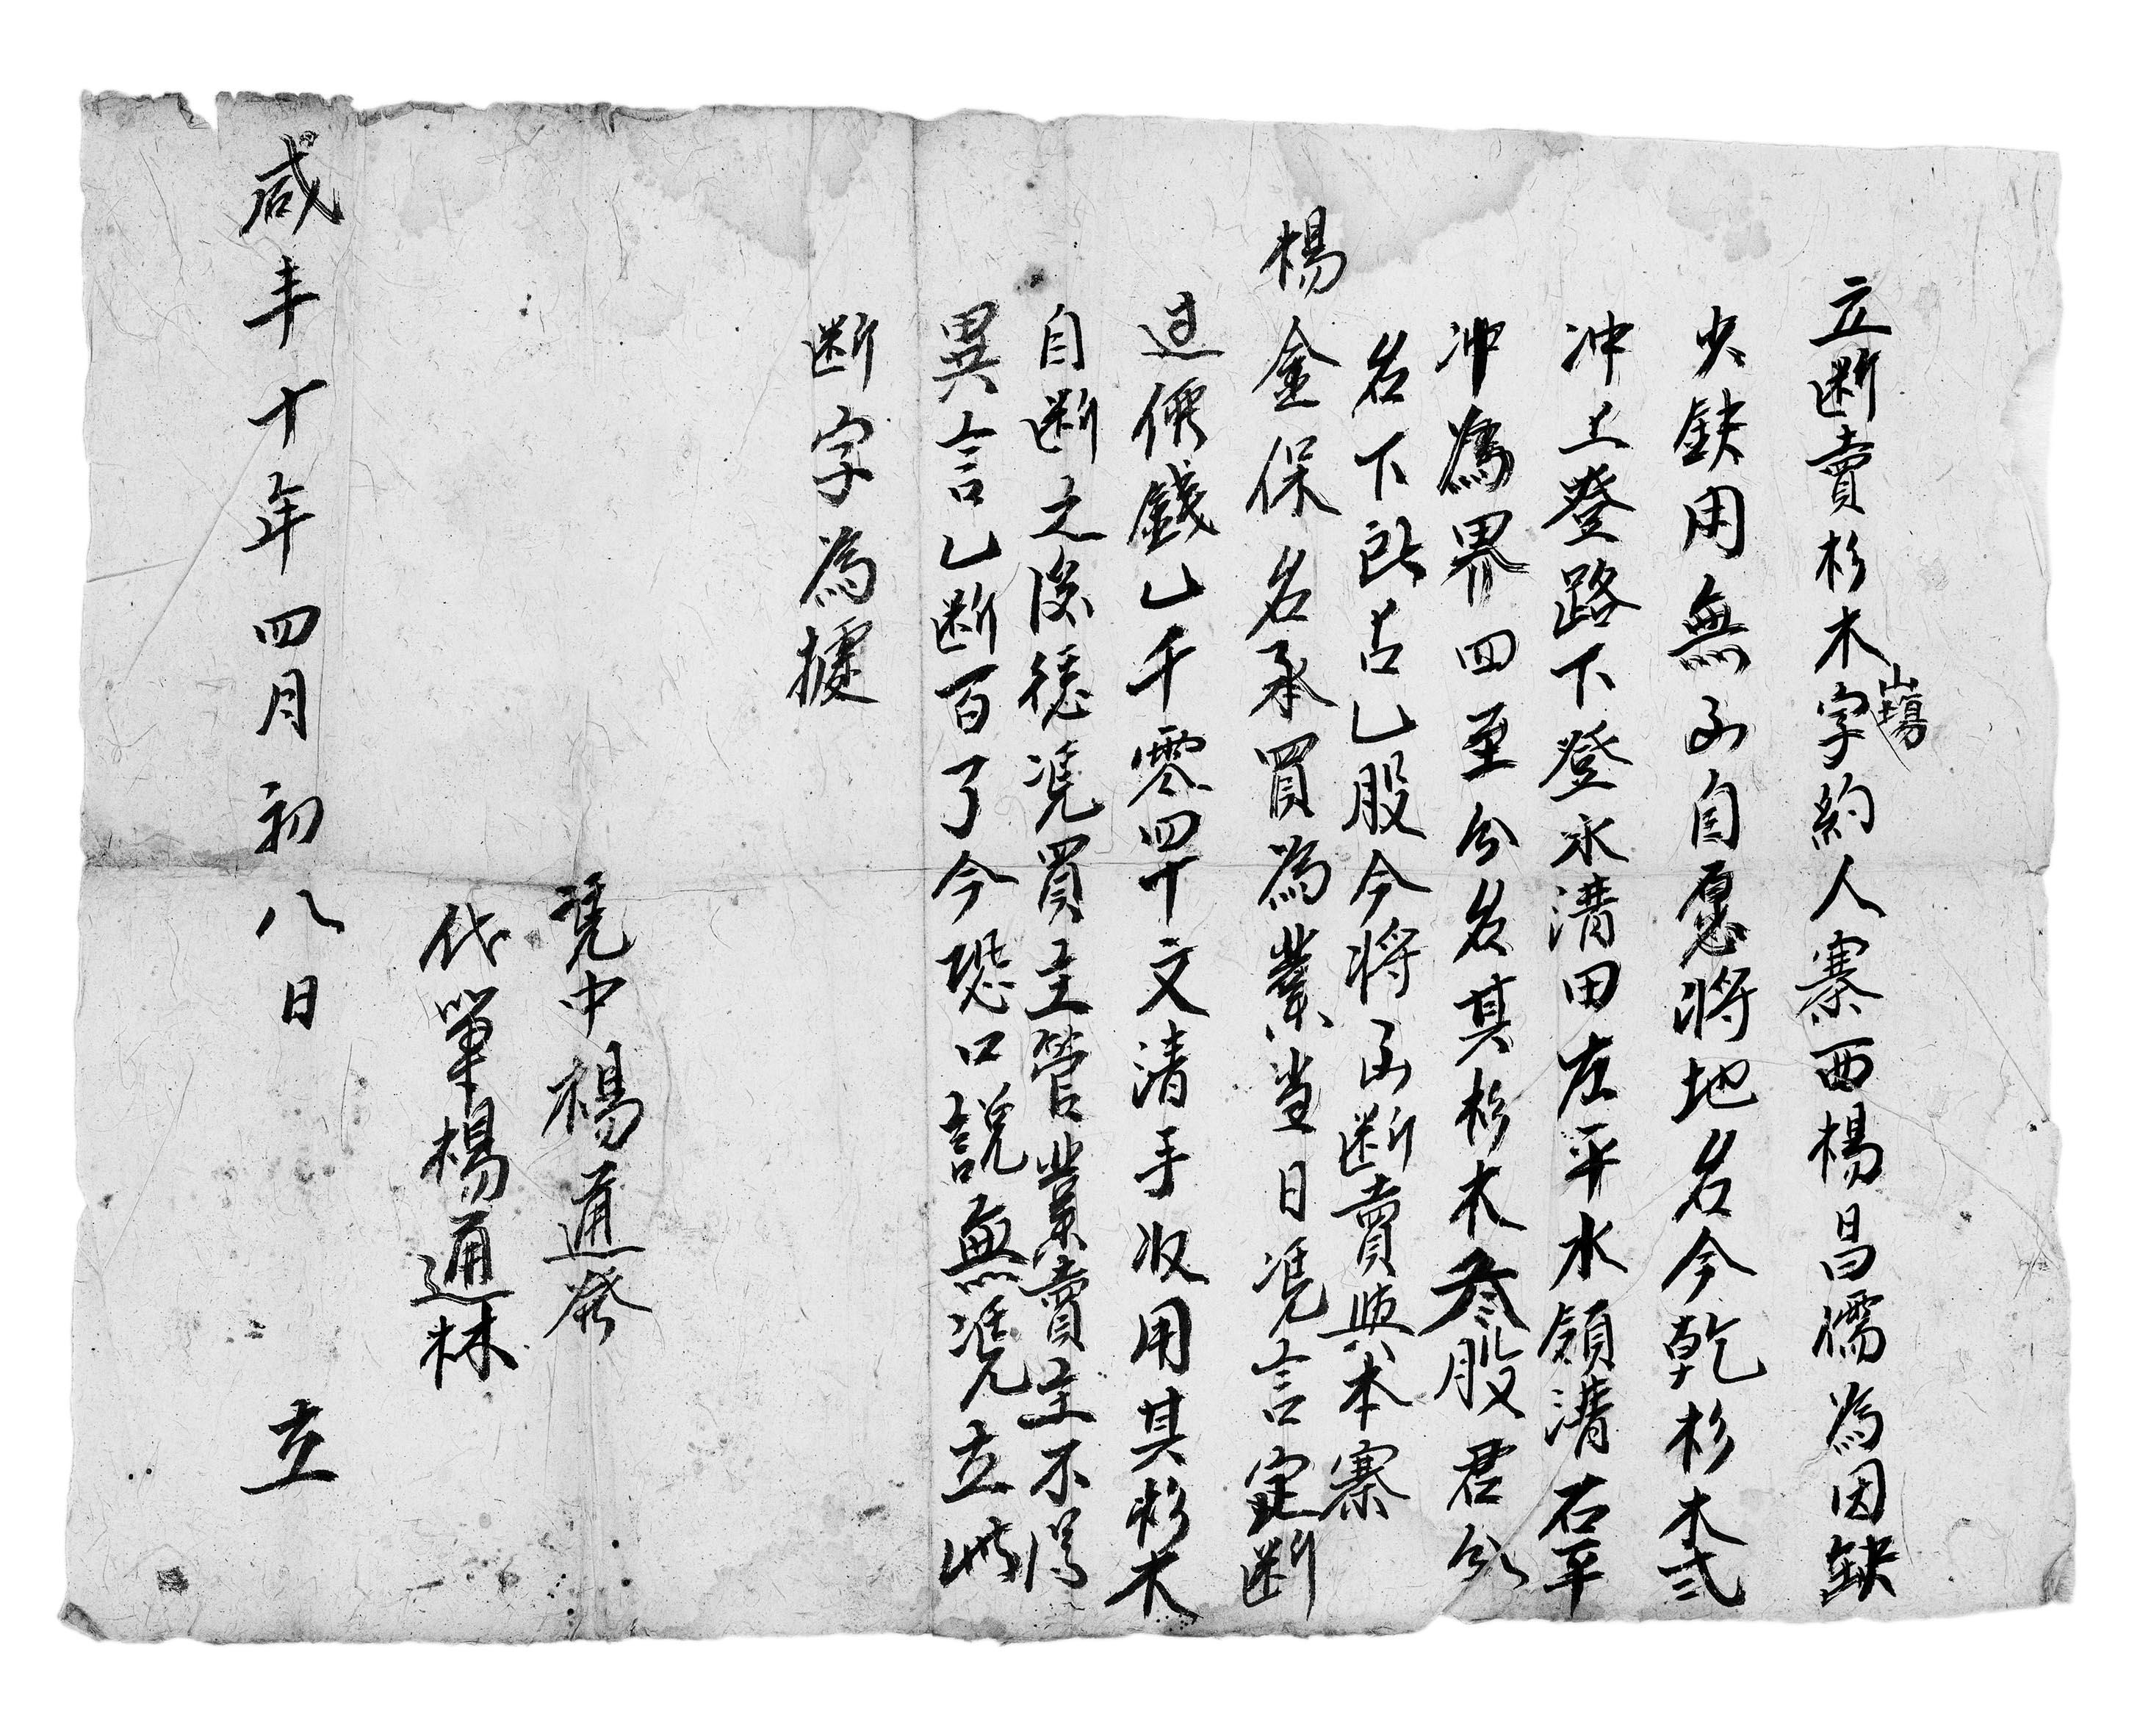 立断賣杉木山塲字約人寨西楊昌儒為因缺
少銭用無出自愿將地名今乾杉木弍
冲上登路下登水溝田左平水領溝右平
冲為界四至分名其杉木叁股君分
名下所占乚股今將出断賣與本寨
楊金保名承買為業當日凴言定断
过價錢乚千零四十文清手收用其杉木
自断之後任凴買主管業賣主不得
異言乚断百了今恐口説無凴立此
断字為據
凴中楊通發
代筆楊通林
咸丰十年四月初八日 立